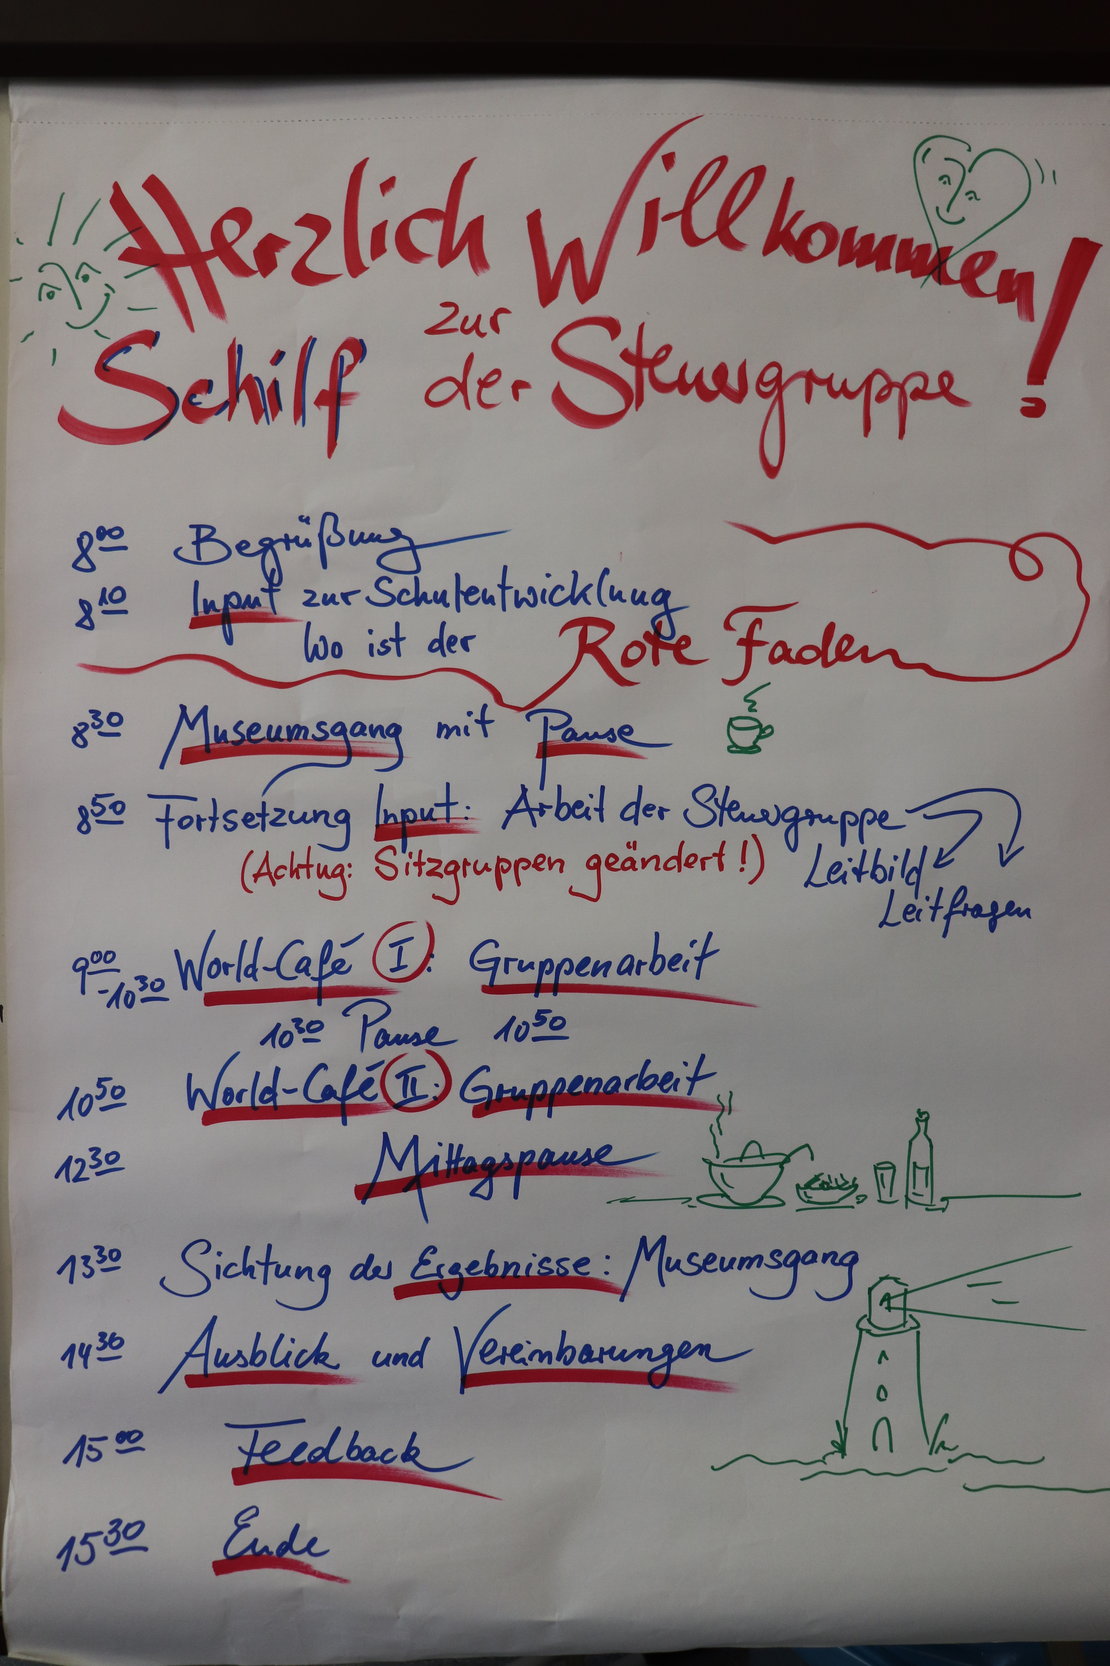 Herzlich Willkommen!
zur
Schilf der Steuergruppe
8 00 Begrüßung
8 10 Input zur Schulentwicklung
Wo ist der Rote Faden
8 30 Museumsgang mit Pause
8 50 Fortsetzung Input: Arbeit der Steuergruppe
(Achtug: Sitzgruppen geändert!) Leitbild
Leitfragen
9 00 - 10 30 World-Café I: Gruppenarbeit
10 30 Pause 10 50
10 50 World-Café II: Gruppenarbeit
12 30 Mittagspause
13 30 Sichtung der Ergebnisse: Museumsgang
14 30 Ausblick und Vereinbarungen
15 00 Feedback
15 30 Ende